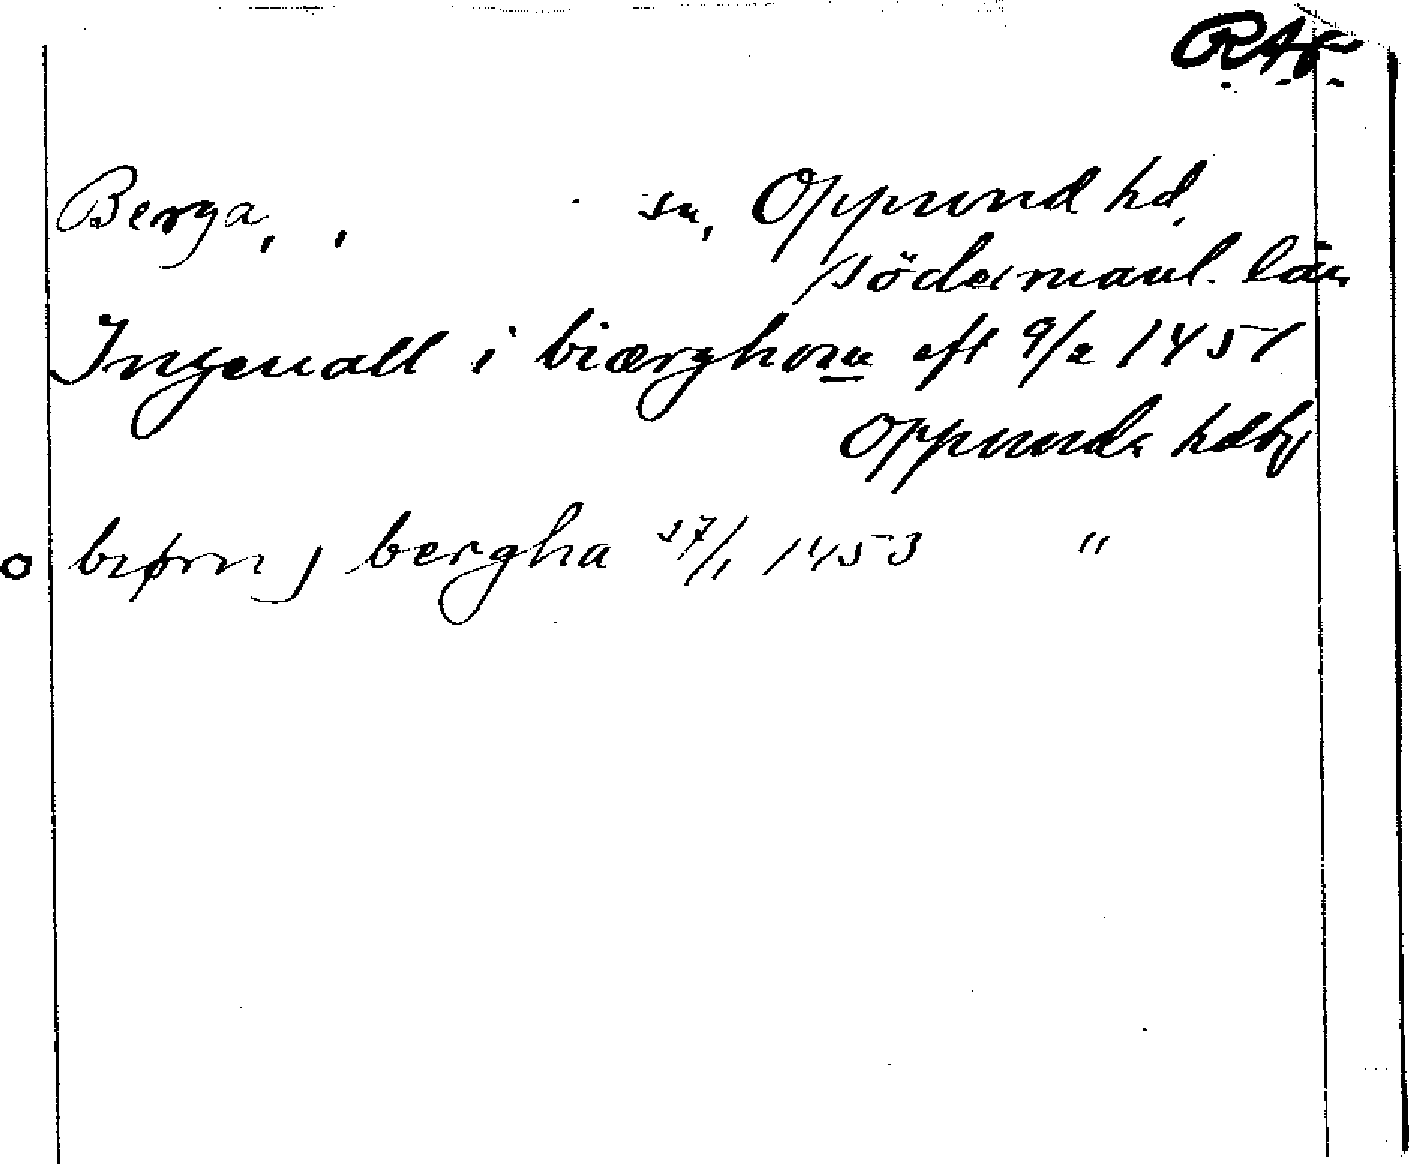 Berga, , sn, Oppund hd.
Södermanl. län
Ingeuall i biærghom eft 9/2 1451
Oppunda hdby
biørn j bergha 17/1 1453 "